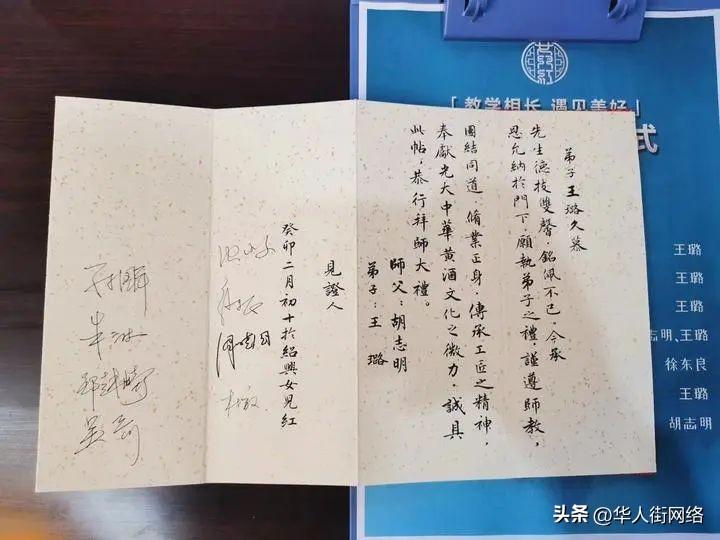 弟子王璐久慕
先生德技雙馨，銘佩不已，今承
恩允納於門下，願執弟子之禮，謹遵師教，
團結同道，脩業正身，傳承工匠之精神，
奉獻光大中華黃酒文化之微力，誠具
此帖，恭行拜師大禮。
師父：胡志明
弟子：王璐
見證人
癸卯二月初十於紹興女兒紅
[ 教学相长 遇见美好 ]
式
王璐
王璐
王璐
志明、王璐
徐东良
王璐
胡志明
头条 @华人街网络